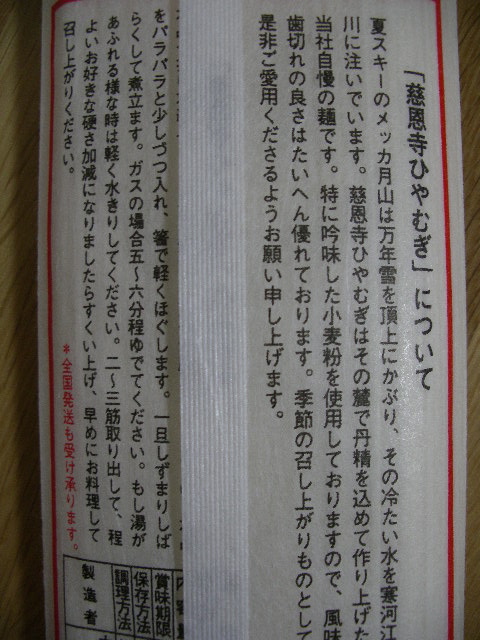 「慈恩寺ひやむぎ」について
夏スキーのメッカ月山は万年雪を頂上にかぶり、その冷たい水を寒河江
川に注いでいます。慈恩寺ひやむぎはその麓で丹精を込めて作り上げた
当社自慢の麺です。特に吟味した小麦粉を使用しておりますので、風味
歯切れの良さはたいへん優れております。季節の召し上がりものとして
是非ご愛用くださるようお願い申し上げます。
をバラバラと少しづつ入れ、箸で軽くほぐします。一旦しずまりしば
らくして煮立ます。ガスの場合五〜六分程ゆでてください。もし湯が
あふれる様な時は軽く水きりしてください。二〜三筋取り出して、程
よいお好きな硬さ加減になりましたらすくい上げ、早めにお料理して
召し上がりください。
*全国発送も受け承ります。
賞味期限
保存方法
調理方法
製造者